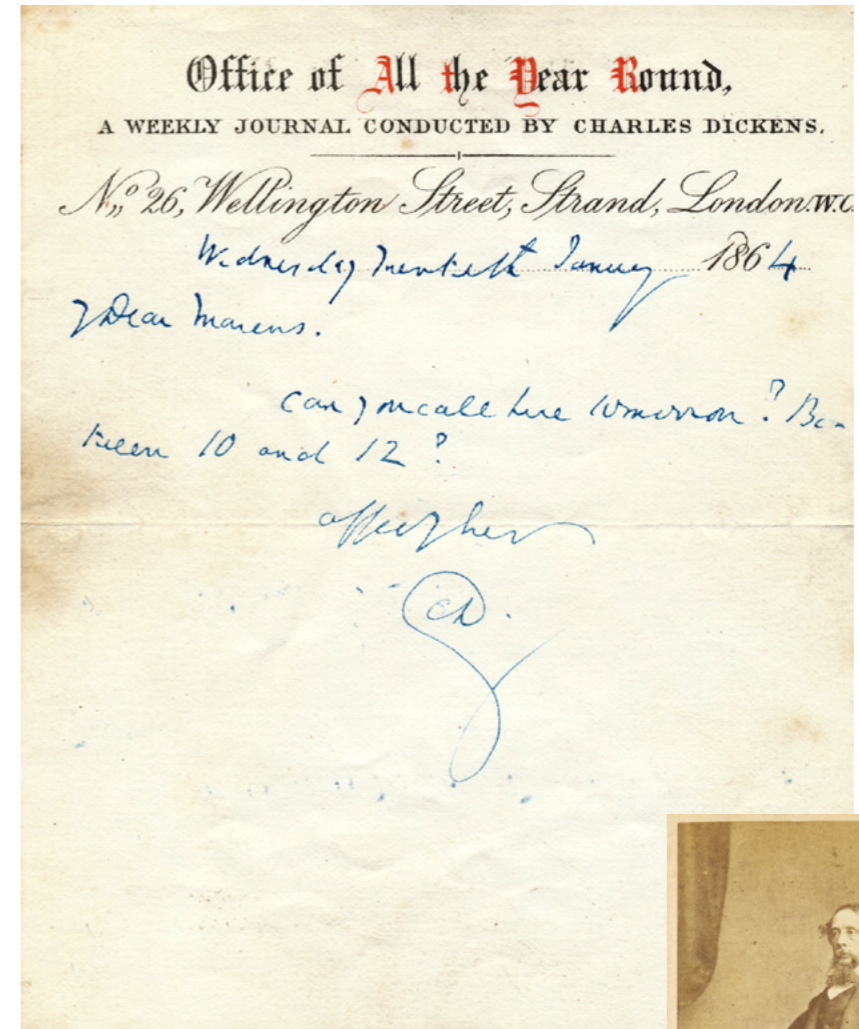 Office of All the Year Round,
A WEEKLY JOURNAL CONDUCTED BY CHARLES DICKENS.
No. 26, Wellington Street, Strand, London. W.C.
Wednesday Twentieth January 1864
My Dear Marcus.
Can you call here tomorrow? Be-
tween 10 and 12?
CD.